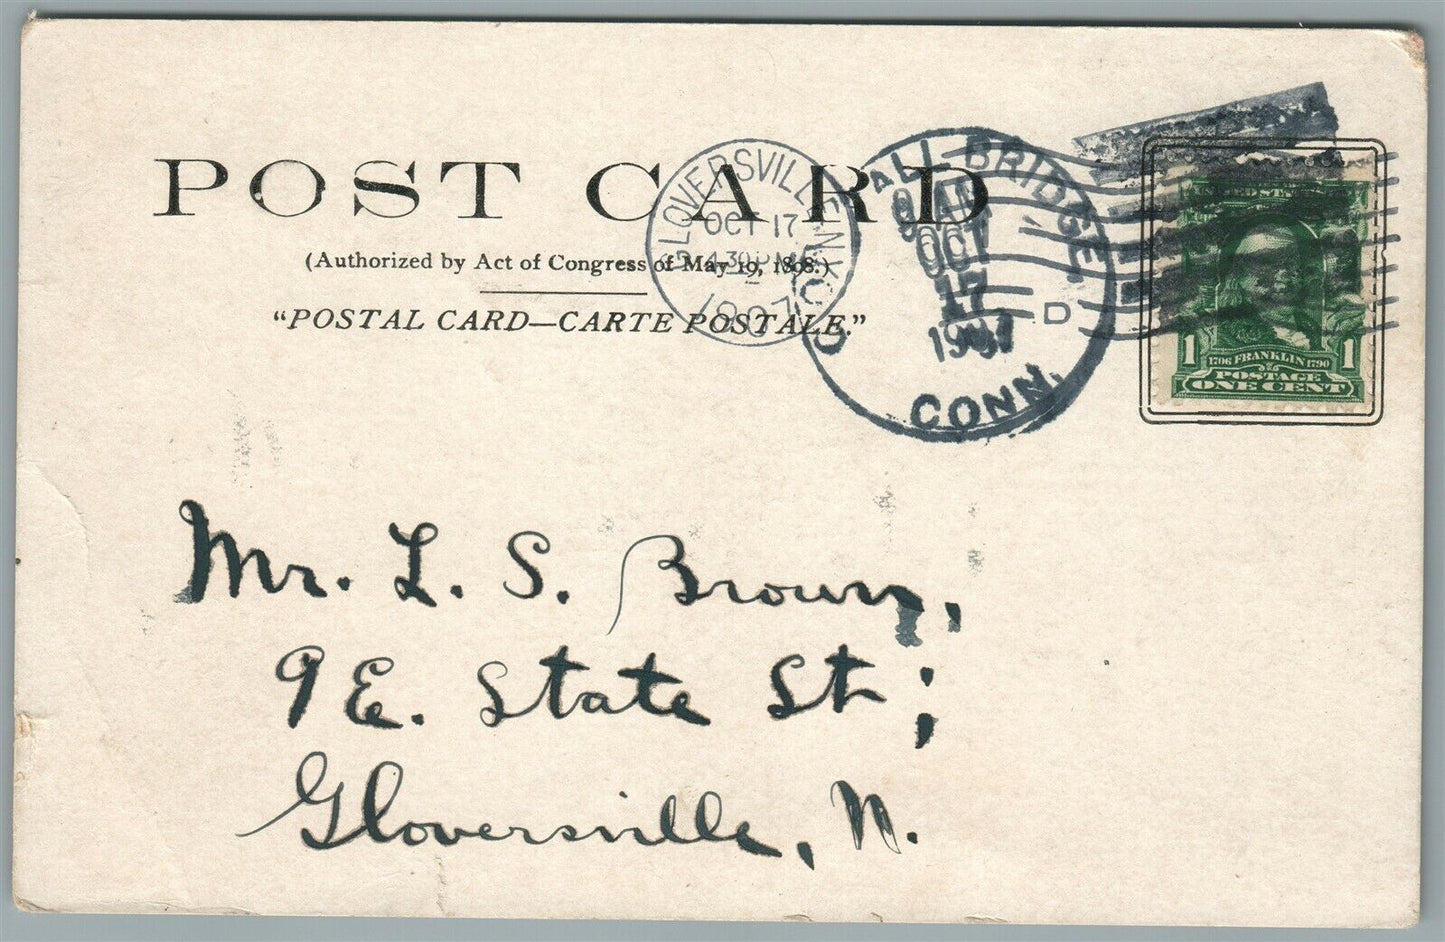 POST CARD
(Authorized by Act of Congress of May 19, 1898.)
"POSTAL CARD—CARTE POSTALE."
GLOVERSVILLE N.Y.
OCT 17
430 PM
1907
FALL-BRIDGE
OCT
17
1907
CONN.
D
UNITED STATES
1 1706 FRANKLIN 1790 1
POSTAGE
ONE CENT
Mr. L. S. Brown,
9 E. State St;
Gloversville, N.